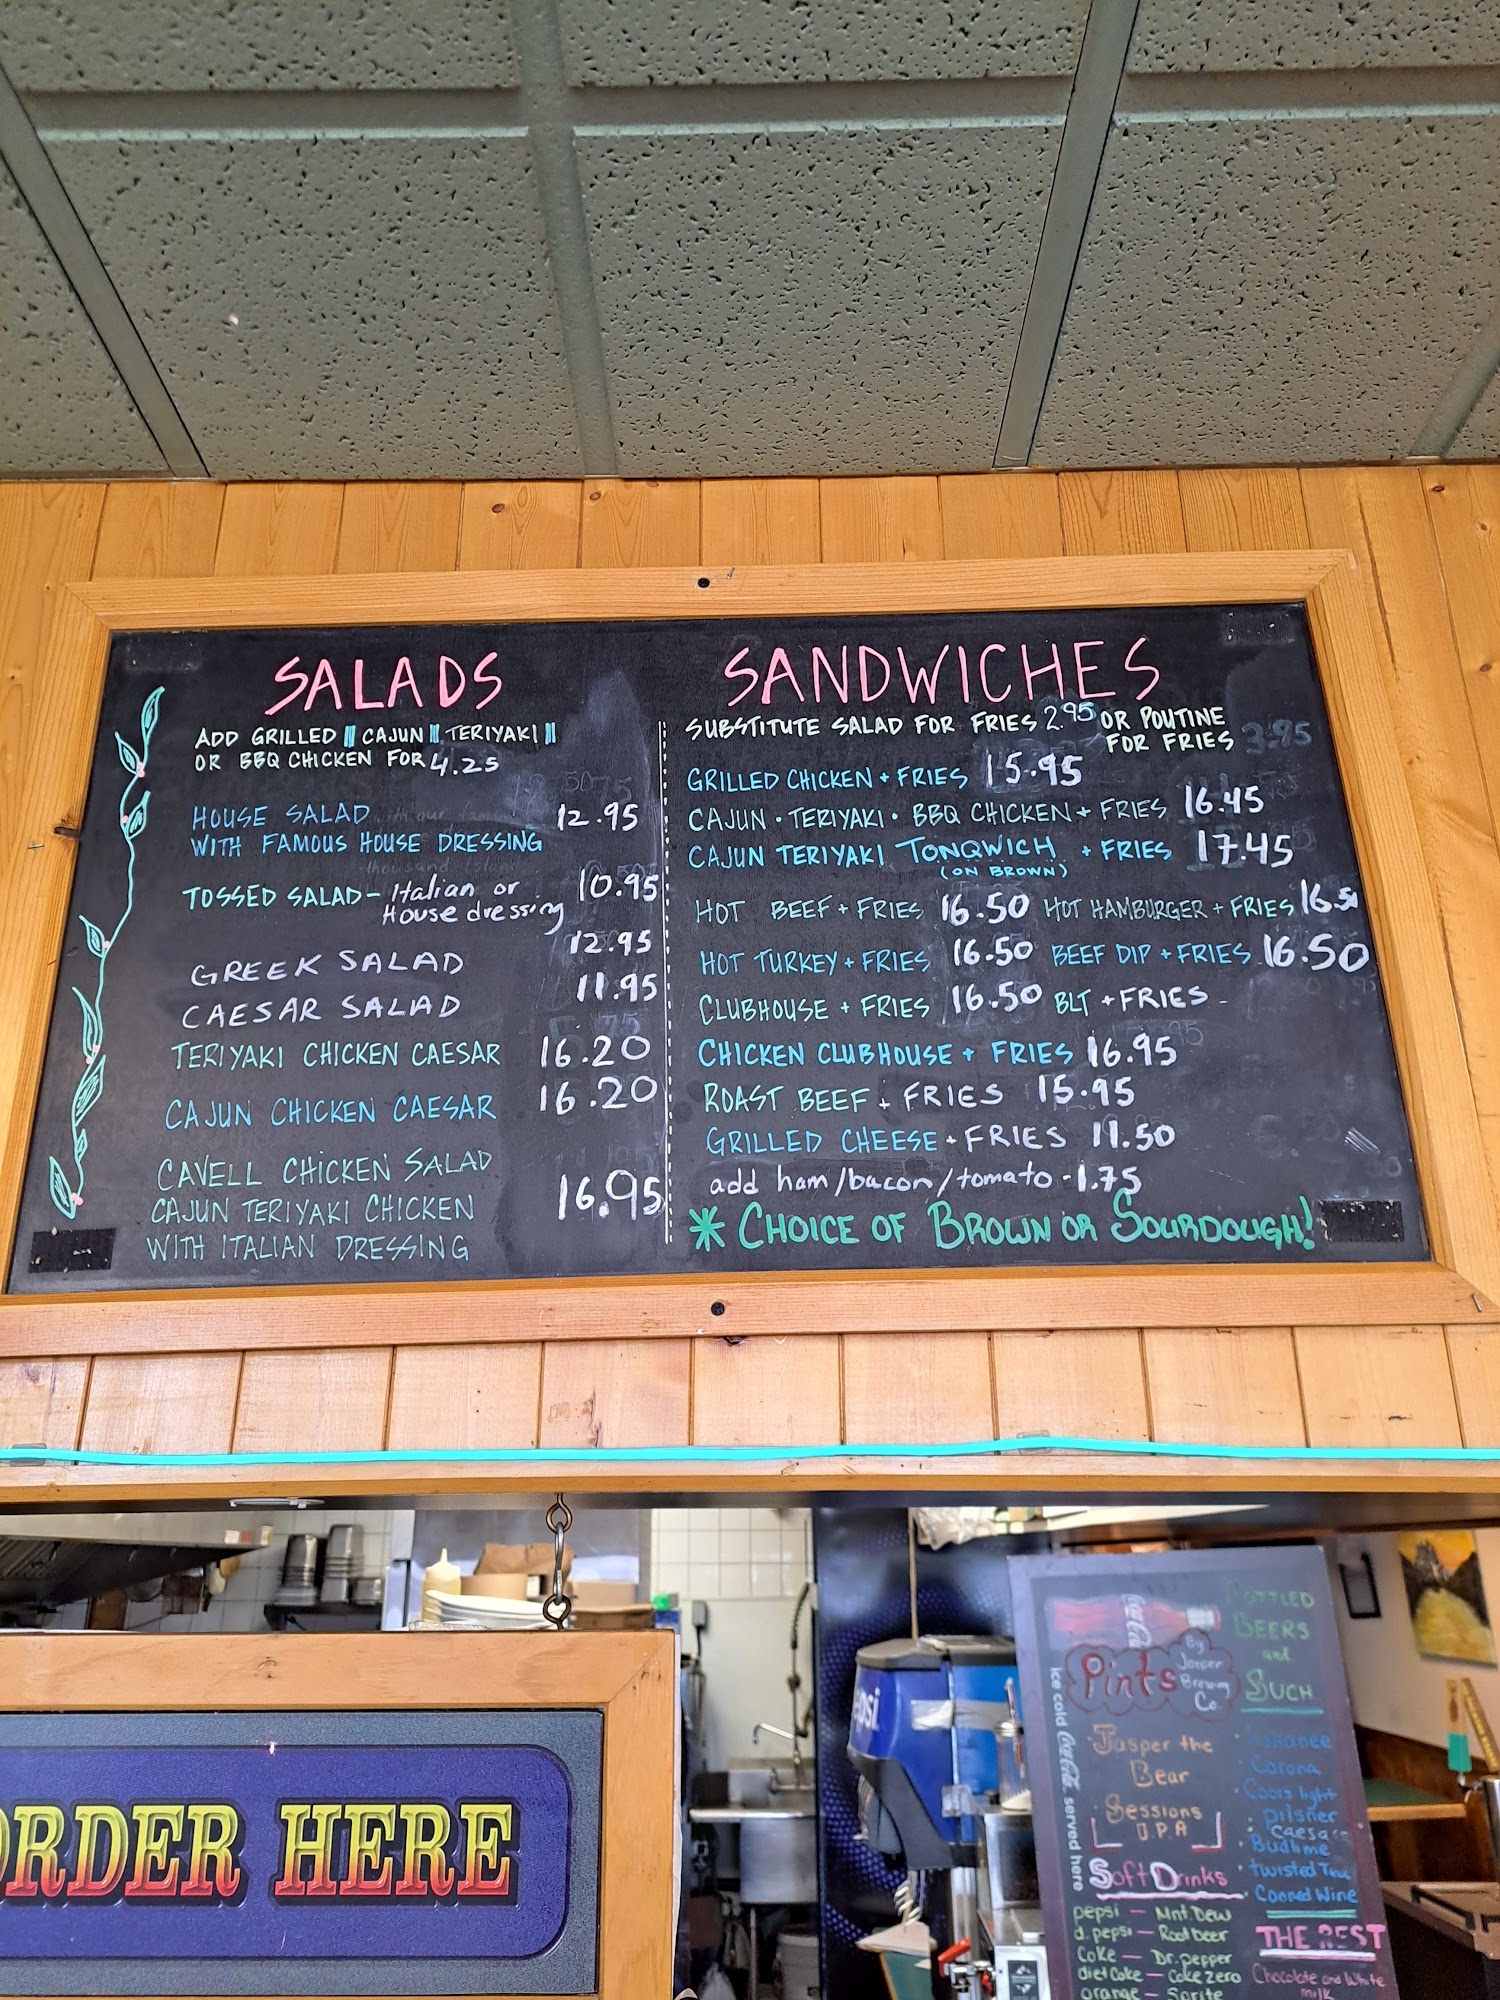 SALADS
ADD GRILLED CAJUN TERIYAKI
OR BBQ CHICKEN FOR 4.25
HOUSE SALAD 12.95
WITH FAMOUS HOUSE DRESSING
TOSSED SALAD - Italian or 10.95
House dressing
GREEK SALAD 12.95
CAESAR SALAD 11.95
TERIYAKI CHICKEN CAESAR 16.20
CAJUN CHICKEN CAESAR 16.20
CAVELL CHICKEN SALAD
CAJUN TERIYAKI CHICKEN 16.95
WITH ITALIAN DRESSING
SANDWICHES
SUBSTITUTE SALAD FOR FRIES 2.95 OR POUTINE
FOR FRIES 3.95
GRILLED CHICKEN + FRIES 15.95
CAJUN · TERIYAKI · BBQ CHICKEN + FRIES 16.45
CAJUN TERIYAKI TONQWICH + FRIES 17.45
(ON BROWN)
HOT BEEF + FRIES 16.50 HOT HAMBURGER + FRIES 16.50
HOT TURKEY + FRIES 16.50 BEEF DIP + FRIES 16.50
CLUBHOUSE + FRIES 16.50 BLT + FRIES -
CHICKEN CLUBHOUSE + FRIES 16.95
ROAST BEEF + FRIES 15.95
GRILLED CHEESE + FRIES 11.50
add ham/bacon/tomato - 1.75
* CHOICE OF BROWN OR SOURDOUGH!
ORDER HERE
pepsi
Coca-Cola
Pints
By
Jasper
Brewing
Co.
Jasper the
Bear
Sessions
I.P.A
ice cold Coca-Cola served here
Soft Drinks
pepsi — Mnt. Dew
d. pepsi — Root beer
Coke — Dr. pepper
diet Coke — Coke zero
orange — Sprite
BOTTLED
BEERS
and
SUCH
Kokanee
Corona
Coors light
pilsner
Caesars
Budlime
twisted Tea
Canned Wine
THE REST
Chocolate and White
milk